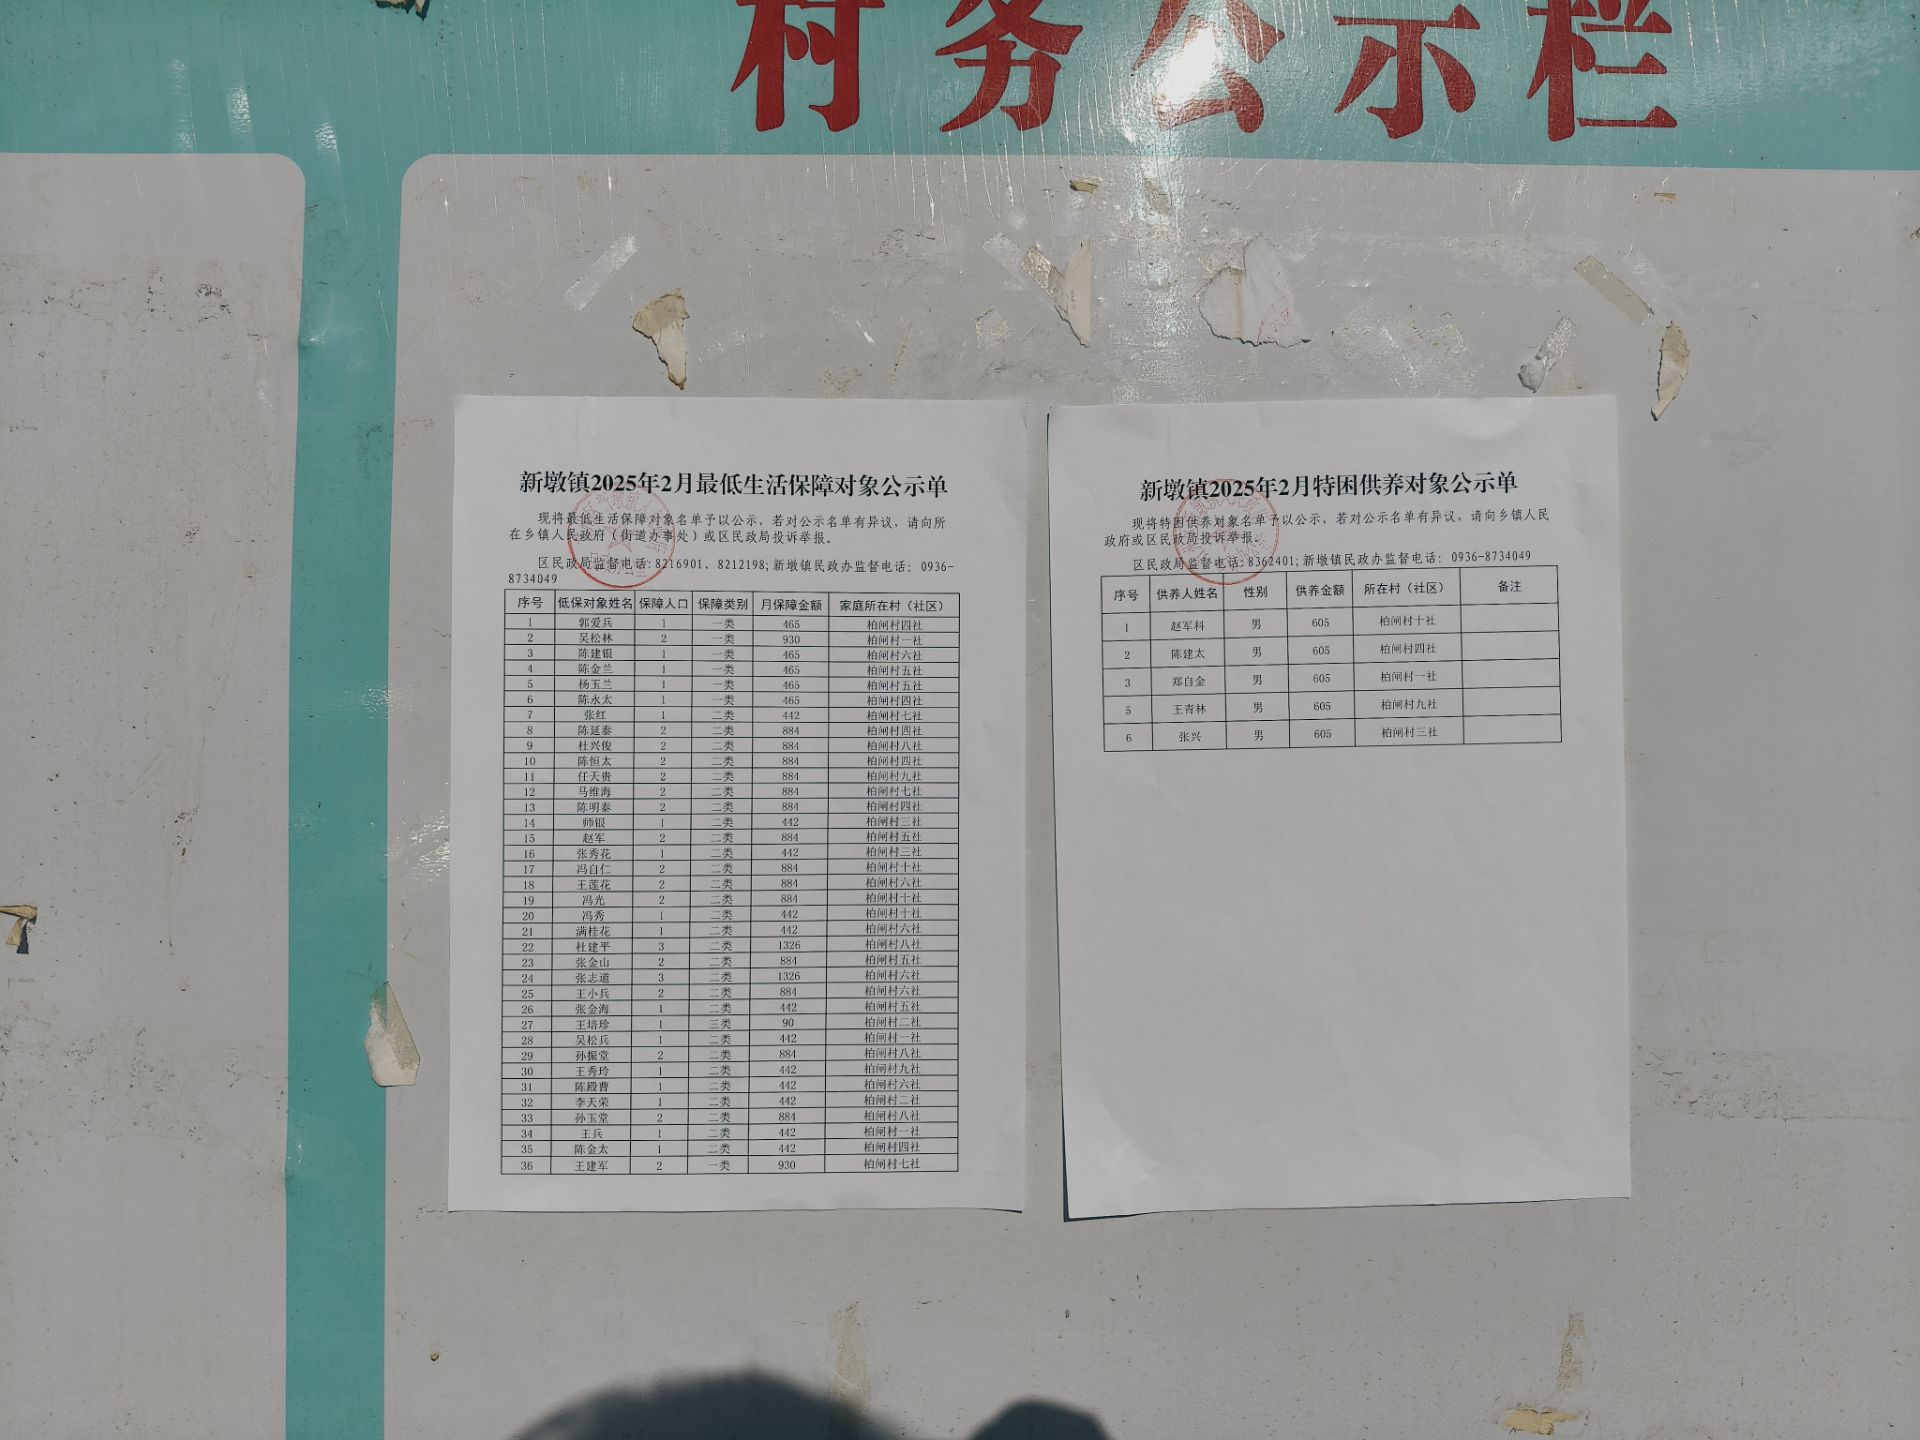 村务公示栏
新墩镇2025年2月最低生活保障对象公示单
现将最低生活保障对象名单予以公示，若对公示名单有异议，请向所
在乡镇人民政府（街道办事处）或区民政局投诉举报。
区民政局监督电话：8216901、8212198；新墩镇民政办监督电话：0936-
8734049
序号 低保对象姓名 保障人口 保障类别 月保障金额 家庭所在村（社区）
1 郭爱兵 1 一类 465 柏闸村四社
2 吴松林 2 一类 930 柏闸村一社
3 陈建银 1 一类 465 柏闸村六社
4 陈金兰 1 一类 465 柏闸村五社
5 杨玉兰 1 一类 465 柏闸村五社
6 陈永太 1 一类 465 柏闸村四社
7 张红 1 二类 442 柏闸村七社
8 陈延泰 2 二类 884 柏闸村四社
9 杜兴俊 2 二类 884 柏闸村八社
10 陈恒太 2 二类 884 柏闸村四社
11 任天贵 2 二类 884 柏闸村九社
12 马维海 2 二类 884 柏闸村七社
13 陈明泰 2 二类 884 柏闸村四社
14 师银 1 二类 442 柏闸村三社
15 赵军 2 二类 884 柏闸村五社
16 张秀花 1 二类 442 柏闸村三社
17 冯自仁 2 二类 884 柏闸村十社
18 王莲花 2 二类 884 柏闸村六社
19 冯光 2 二类 884 柏闸村十社
20 冯秀 1 二类 442 柏闸村十社
21 满桂花 1 二类 442 柏闸村六社
22 杜建平 3 二类 1326 柏闸村八社
23 张金山 2 二类 884 柏闸村五社
24 张志道 3 二类 1326 柏闸村六社
25 王小兵 2 二类 884 柏闸村六社
26 张金海 1 二类 442 柏闸村五社
27 王培珍 1 三类 90 柏闸村二社
28 吴松兵 1 二类 442 柏闸村一社
29 孙振堂 2 二类 884 柏闸村八社
30 王秀玲 1 二类 442 柏闸村九社
31 陈殿曹 1 二类 442 柏闸村六社
32 李天荣 1 二类 442 柏闸村二社
33 孙玉堂 2 二类 884 柏闸村八社
34 王兵 1 二类 442 柏闸村一社
35 陈金太 1 二类 442 柏闸村四社
36 王建军 2 一类 930 柏闸村七社
新墩镇2025年2月特困供养对象公示单
现将特困供养对象名单予以公示，若对公示名单有异议，请向乡镇人民
政府或区民政局投诉举报。
区民政局监督电话：8362401；新墩镇民政办监督电话：0936-8734049
序号 供养人姓名 性别 供养金额 所在村（社区） 备注
1 赵军科 男 605 柏闸村十社
2 陈建太 男 605 柏闸村四社
3 郑自金 男 605 柏闸村一社
5 王青林 男 605 柏闸村九社
6 张兴 男 605 柏闸村三社